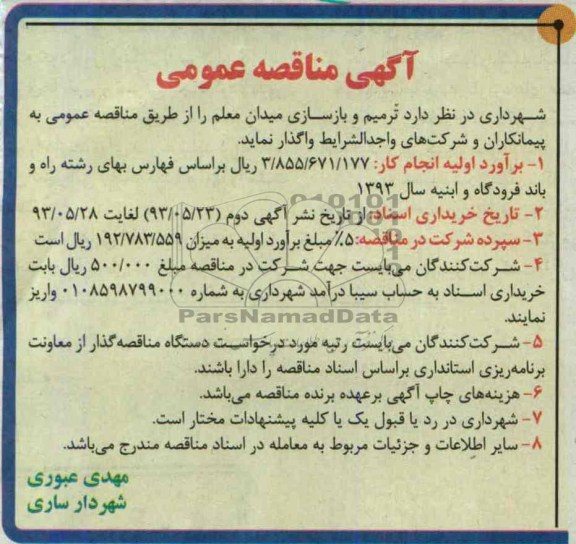 آگهی مناقصه عمومی
شهرداری در نظر دارد تَرمیم و بازسازی میدان معلم را از طریق مناقصه عمومی به
پیمانکاران و شرکت‌های واجدالشرایط واگذار نماید.
۱- برآورد اولیه انجام کار: ۳/۸۵۵/۶۷۱/۱۷۷ ریال براساس فهارس بهای رشته راه و
باند فرودگاه و ابنیه سال ۱۳۹۳
۲- تاریخ خریداری اسناد: از تاریخ نشر آگهی دوم (۹۳/۰۵/۲۳) لغایت ۹۳/۰۵/۲۸
۳- سپرده شرکت در مناقصه: ۵٪ مبلغ برآورد اولیه به میزان ۱۹۲/۷۸۳/۵۵۹ ریال است
۴- شرکت‌کنندگان می‌بایست جهت شرکت در مناقصه مبلغ ۵۰۰/۰۰۰ ریال بابت
خریداری اسناد به حساب سیبا درآمد شهرداری به شماره ۰۱۰۸۵۹۸۷۹۹۰۰۰ واریز
نمایند.
ParsNamadData
۵- شرکت‌کنندگان می‌بایست رتبه مورد درخواست دستگاه مناقصه‌گذار از معاونت
برنامه‌ریزی استانداری براساس اسناد مناقصه را دارا باشند.
۶- هزینه‌های چاپ آگهی برعهده برنده مناقصه می‌باشد.
۷- شهرداری در رد یا قبول یک یا کلیه پیشنهادات مختار است.
۸- سایر اطلاعات و جزئیات مربوط به معامله در اسناد مناقصه مندرج می‌باشد.
مهدی عبوری
شهردار ساری